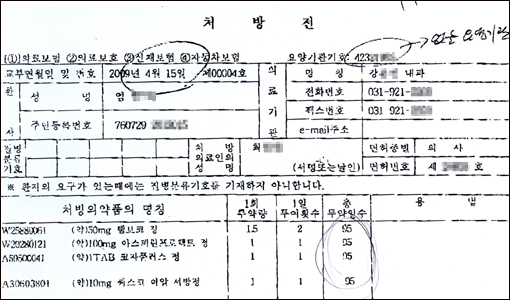 처 방 전
(①)의료보험 ②의료보호 ③산재보험 ④자동차보험 요양기관기호: 423
교부번월일 및 번호 2009년 4월 15일 제00004호 의 명 칭 강 내과
환 성 명 엄 료 전화번호 031-921-
기 팩스번호 031 921-
자 주민등록번호 760729 관 e-mail주소
질병 분류 기호 처 방 의료인의 성 명 최 (서명또는날인) 면허종별 의 사
면허번호 제 호
※ 환자의 요구가 있는때에는 질병분류기호를 기재하지 아니합니다.
처방의약품의 명칭 1회 투약량 1일 투여횟수 총 투약일수 용 법
W25880061 (약)50mg 템보코 정 1.5 2 95
W20280121 (약)100mg 아스피린프로텍트 정 1 1 95
A59500041 (약)1TAB 코자플러스 정 1 1 95
A30603801 (약)10mg 씨스코 이알 서방정 1 1 95